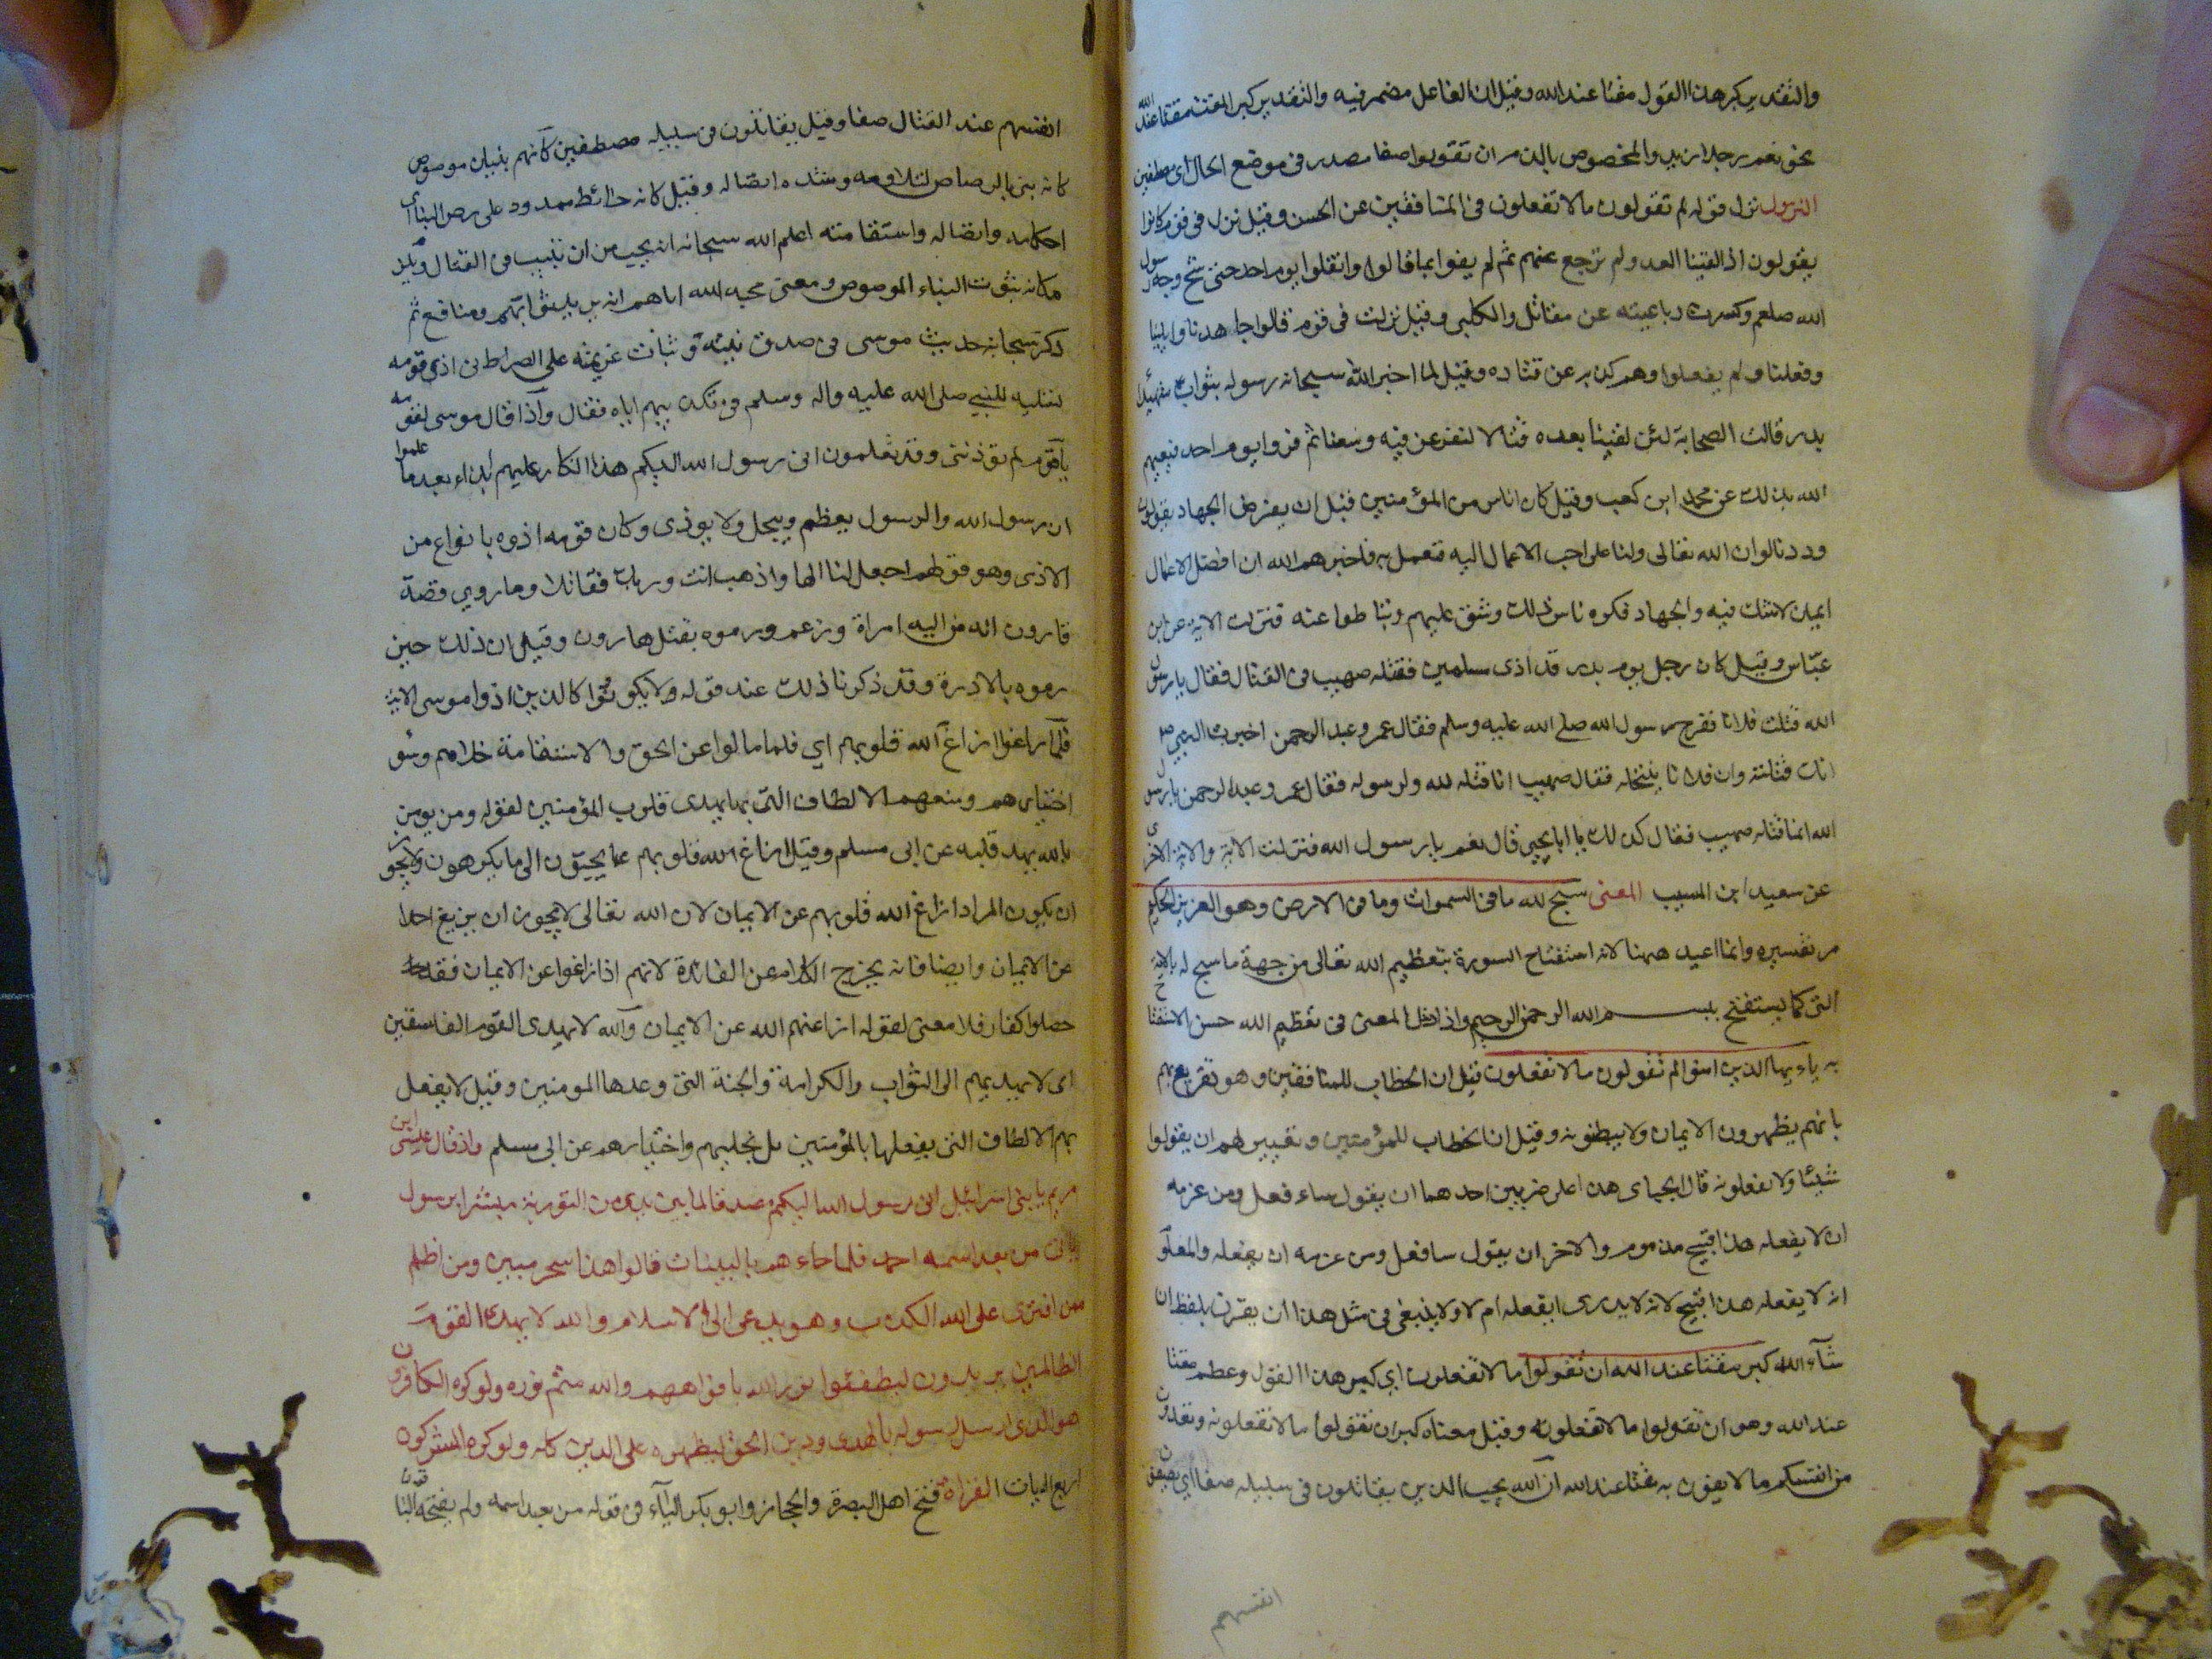 والتقدير كبر هذا القول مقتا عند الله وقيل ان الفاعل مضمر فيه والتقدير كبر المقت مقتا عند الله
نحو نعم رجلا زيد والمخصوص بالذم ان تقولوا صفا مصدر فى موضع الحال اى مصطفين
النزول نزل قوله لم تقولون ما لا تفعلون فى المنافقين عن الحسن وقيل نزل فى قوم كانوا
يقولون اذا لقينا العدو لم نرجع عنهم ثم لم يفوا بما قالوا وانفلوا يوم احد حتى شج وجه رسول
الله صلعم وكسرت رباعيته عن مقاتل والكلبى وقيل نزلت فى قوم قالوا جاهدنا وابلينا
وفعلنا ولم يفعلوا وهم كذبه عن قتاده وقيل لما اخبر الله سبحانه رسوله بثواب شهداء
بدر قالت الصحابة لئن لقينا بعده قتالا لنفرغن فيه وسعنا ثم فروا يوم احد فعيرهم
الله بذلك عن محمد ابن كعب وقيل كان اناس من المؤمنين قبل ان يفرض الجهاد يقولون
وددنا لو ان الله تعالى دلنا على احب الاعمال اليه فنعمل به فاخبرهم الله ان افضل الاعمال
ايمان لا شك فيه والجهاد فكره ناس ذلك وشق عليهم وتباطوا عنه فنزلت الاية عن ابن
عباس وقيل كان رجل يوم بدر قد اذى مسلمين فقتله صهيب فى القتال فقال يا رسول
الله قتلت فلانا ففرح رسول الله صلى الله عليه وسلم فقال عمر وعبد الرحمن اخبرت النبى ص
انك قتلته وان فلانا ينتحله فقال صهيب انا قتله لله ولرسوله فقال عمر وعبد الرحمن يا رسول
الله انما قتله صهيب فقال كذلك يا ابا يحيى قال نعم يا رسول الله فنزلت الاية والاية الاخرى
عن سعيد ابن المسيب المعنى سبح لله ما فى السموات وما فى الارض وهو العزيز الحكيم
مر تفسيره وانما اعيد ههنا لانه استفتاح السورة بتعظيم الله تعالى من جهة ما سبح له بالاية
التى كما يستفتح ببسم الله الرحمن الرحيم واذا دخل المعنى فى تعظيم الله حسن الاستفتاح
به ياءيها الذين امنوا لم تقولون ما لا تفعلون قيل ان الخطاب للمنافقين وهو تقريع بهم
بانهم يظهرون الايمان ولا يبطنونه وقيل ان الخطاب للمؤمنين وتعيير لهم ان يقولوا
شيئا ولا يفعلونه قال الجبائى هذا على ضربين احدهما ان يقول ساء فعل ومن عزمه
ان لا يفعله هذا قبيح مذموم والاخر ان يقول سافعل ومن عزمه ان يفعله والمعلوم
انه لا يفعله هذا قبيح لانه لا يدرى ايفعله ام لا ولا ينبغى فى مثل هذا ان يقرن بلفظ ان
شآء الله كبر مقتا عند الله ان تقولوا ما لا تفعلون اي كبر هذا القول وعظم مقتا
عند الله وهو ان تقولوا ما لا تفعلونه وقيل معناه كبر ان تقولوا ما لا تفعلونه وتعدون
من انفسكم ما لا يفون به مقتا عند الله ان الله يحب الذين يقاتلون فى سبيله صفا اي يصفون
انفسهم
انفسهم عند القتال صفا وقيل يقاتلون فى سبيله مصطفين كانهم بنيان مرصوص
كانه بنى بالرصاص لتلاومه وشده اتصاله وقيل كانه حائط ممدود على رص البناء اى
احكامه واتصاله واستقامته اعلم الله سبحانه انه يحب من ان يثبت فى القتال ويلزم
مكانه ثبوت البناء المرصوص ومعنى محبه الله اياهم انه يريد ثوابهم ومنافع ثم
ذكر سبحانه حديث موسى فى صدق نيته وثبات عزيمته على الصراط فى اذى قومه
تسليه للنبي صلى الله عليه واله وسلم فى تكذيبهم اياه فقال وآذ قال موسى لقومه
ياقوم لم تؤذننى وقد تعلمون انى رسول الله اليكم هذا انكار عليهم ايذاءه بعد ما علموا
ان رسول الله والرسول يعظم ويبجل ولا يوذى وكان قومه اذوه بانواع من
الاذى وهو قولهم اجعل لنا الها واذهب انت وربك فقاتلا وما روى قصة
قارون انه دس اليه امراة وزعم ورموه بقتل هارون وقيل ان ذلك حين
رموه بالادرة وقد ذكرنا ذلك عند قوله ولا يكونوا كالذين اذوا موسى الاية
فلما زاغوا ازاغ الله قلوبهم اي فلما مالوا عن الحق والاستقامة خلاهم وسوء
اختيارهم ومنعهم الالطاف التى بها يهدى قلوب المؤمنين لقوله ومن يومن
بالله يهد قلبه عن ابى مسلم وقيل ازاغ الله قلوبهم عما يحبون الى ما يكرهون ولا يجوز
ان يكون المراد ازاغ الله قلوبهم عن الايمان لان الله تعالى لا يجوز ان يزيغ احدا
عن الايمان وايضا فانه يخرج الكلام عن الفائدة لانهم اذا زاغوا عن الايمان فقد
حصلوا كفارا فلا معنى لقوله ازاغهم الله عن الايمان والله لا يهدى القوم الفاسقين
اى لا يهديهم الى الثواب والكرامة والجنة التى وعدها المومنين وقيل لا يفعل
بهم الالطاف التى يفعلها بالمؤمنين بل يخليهم واختيارهم عن ابى مسلم واذ قال عيسى ابن
مريم يا بنى اسرائيل انى رسول الله اليكم مصدقا لما بين يدى من التورية مبشرا برسول
ياتى من بعد اسمه احمد فلما جاءهم بالبينات قالوا هذا سحر مبين ومن اظلم
ممن افترى على الله الكذب وهو يدعى الى الاسلام والله لا يهدى القوم
الظالمين يريدون ليطفئوا نور الله بافواههم والله متم نوره ولو كره الكافرون
هو الذى ارسل رسوله بالهدى ودين الحق ليظهره على الدين كله ولو كره المشركون
اربع ايات القراة فتح اهل البصرة والحجاز وابو بكر الياء فى قوله من بعد اسمه ولم يفتحه الباقون